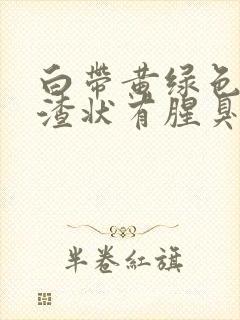 白带黄绿色
渣状有腥臭
半卷红旗